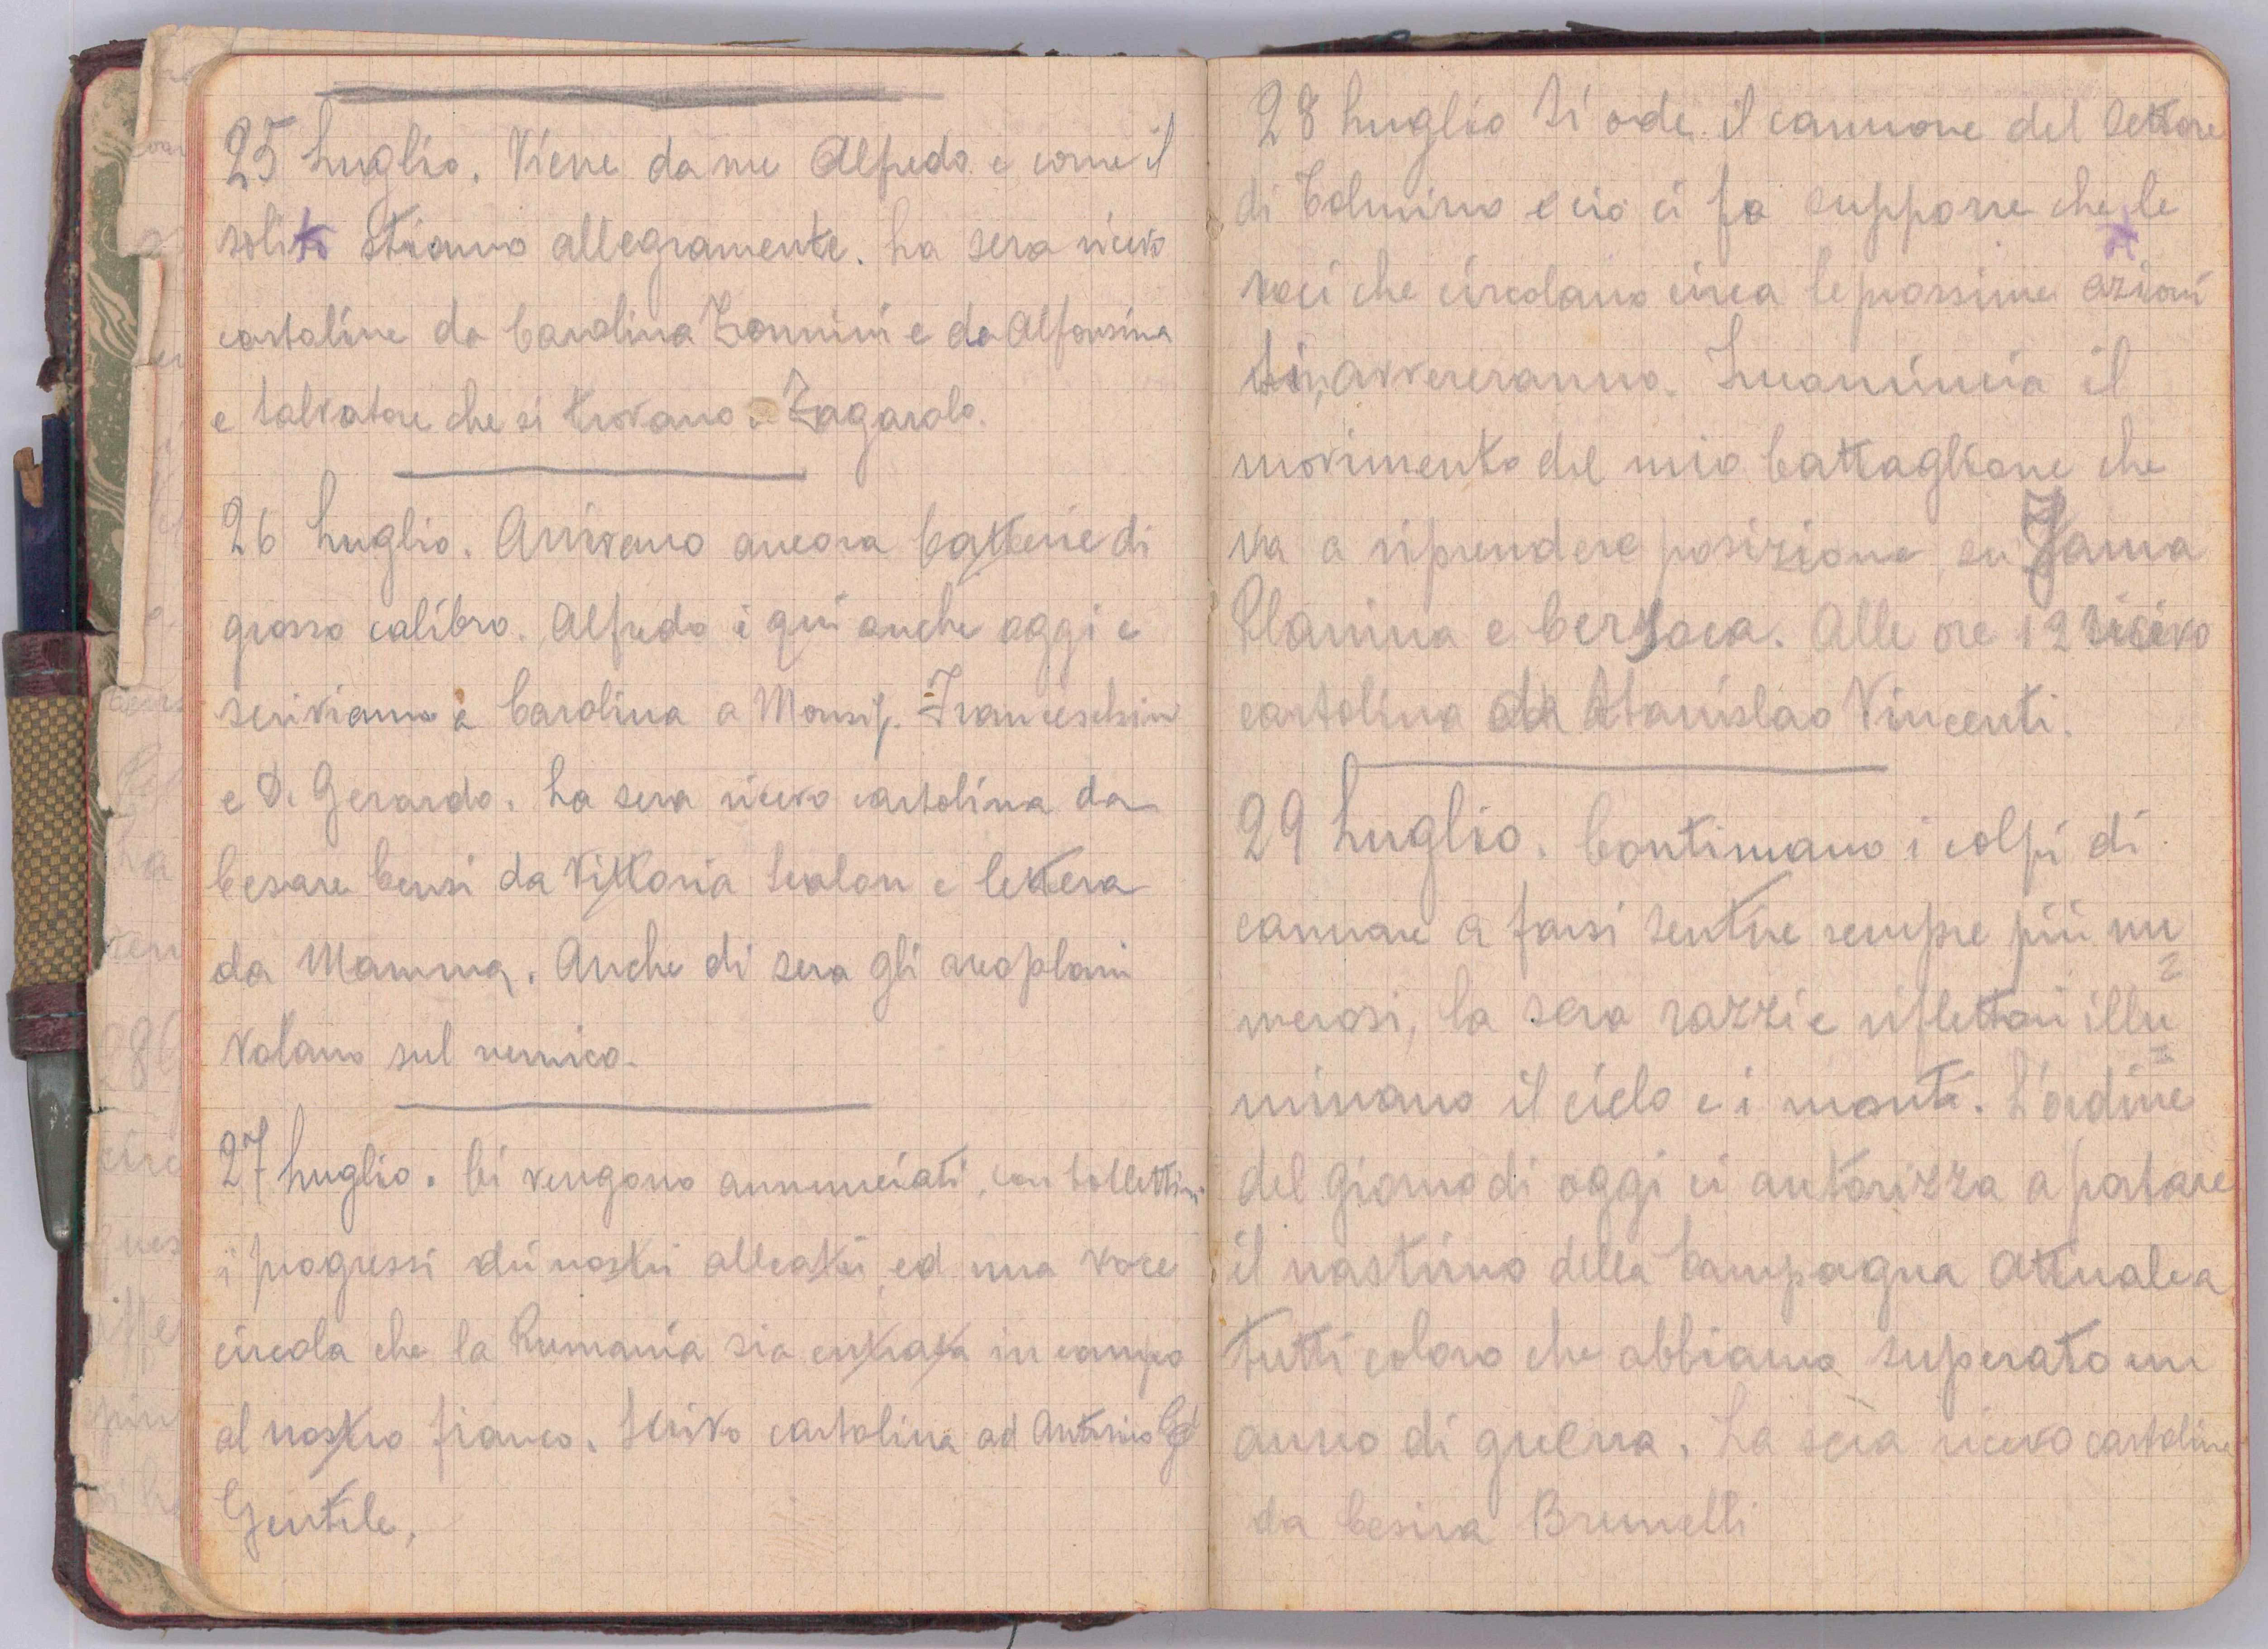 25 Luglio. Viene da me Alfredo e come il
solito stiamo allegramente. La sera ricevo
cartoline da Carolina Zonnini e da Alfonsina
e Salvatore che si trovano a Zagarolo.
26 Luglio. Arrivano ancora batterie di
grosso calibro. Alfredo è qui anche oggi e
scriviamo a Carolina a Monsig. Franceschin
e D. Gerardo. La sera ricevo cartolina da
Cesare Censi da Vittoria Scalon e lettera
da Mamma. Anche di sera gli areoplani
volano sul nemico.
27 Luglio. Ci vengono annunciati, con bollettini
i progressi dii nostri alleati ed una voce
circola che la Rumania sia entrata in campo
al nostro fianco. Scrivo cartolina ad Antonio
Gentile.
28 Luglio Si ode il cannone del settore
di Tolmino e ciò ci fa supporre che le
voci che circolano circa le prossime azioni
si avvereranno. Incomincia il
movimento del mio battaglione che
va a riprendere posizione su Jama
Planina e Bersoca. Alle ore 12 ricevo
cartolina da Stanislao Vincenti.
29 Luglio. Continuano i colpi di
cannone a farsi sentire sempre più nu
merosi, la sera razzi e riflettori illu=
minano il cielo e i monti. L'ordine
del giorno di oggi ci autorizza a portare
il nastrino della Campagna attuale a
tutti coloro che abbiamo superato un
anno di guerra. La sera ricevo cartoline
da Cesira Brunelli